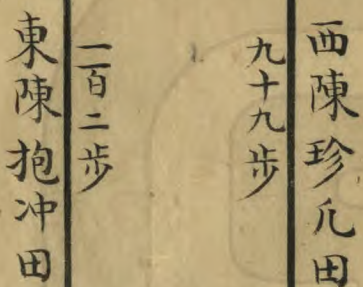 西陳珍凡田
九十九步
一百二步
東陳抱冲田